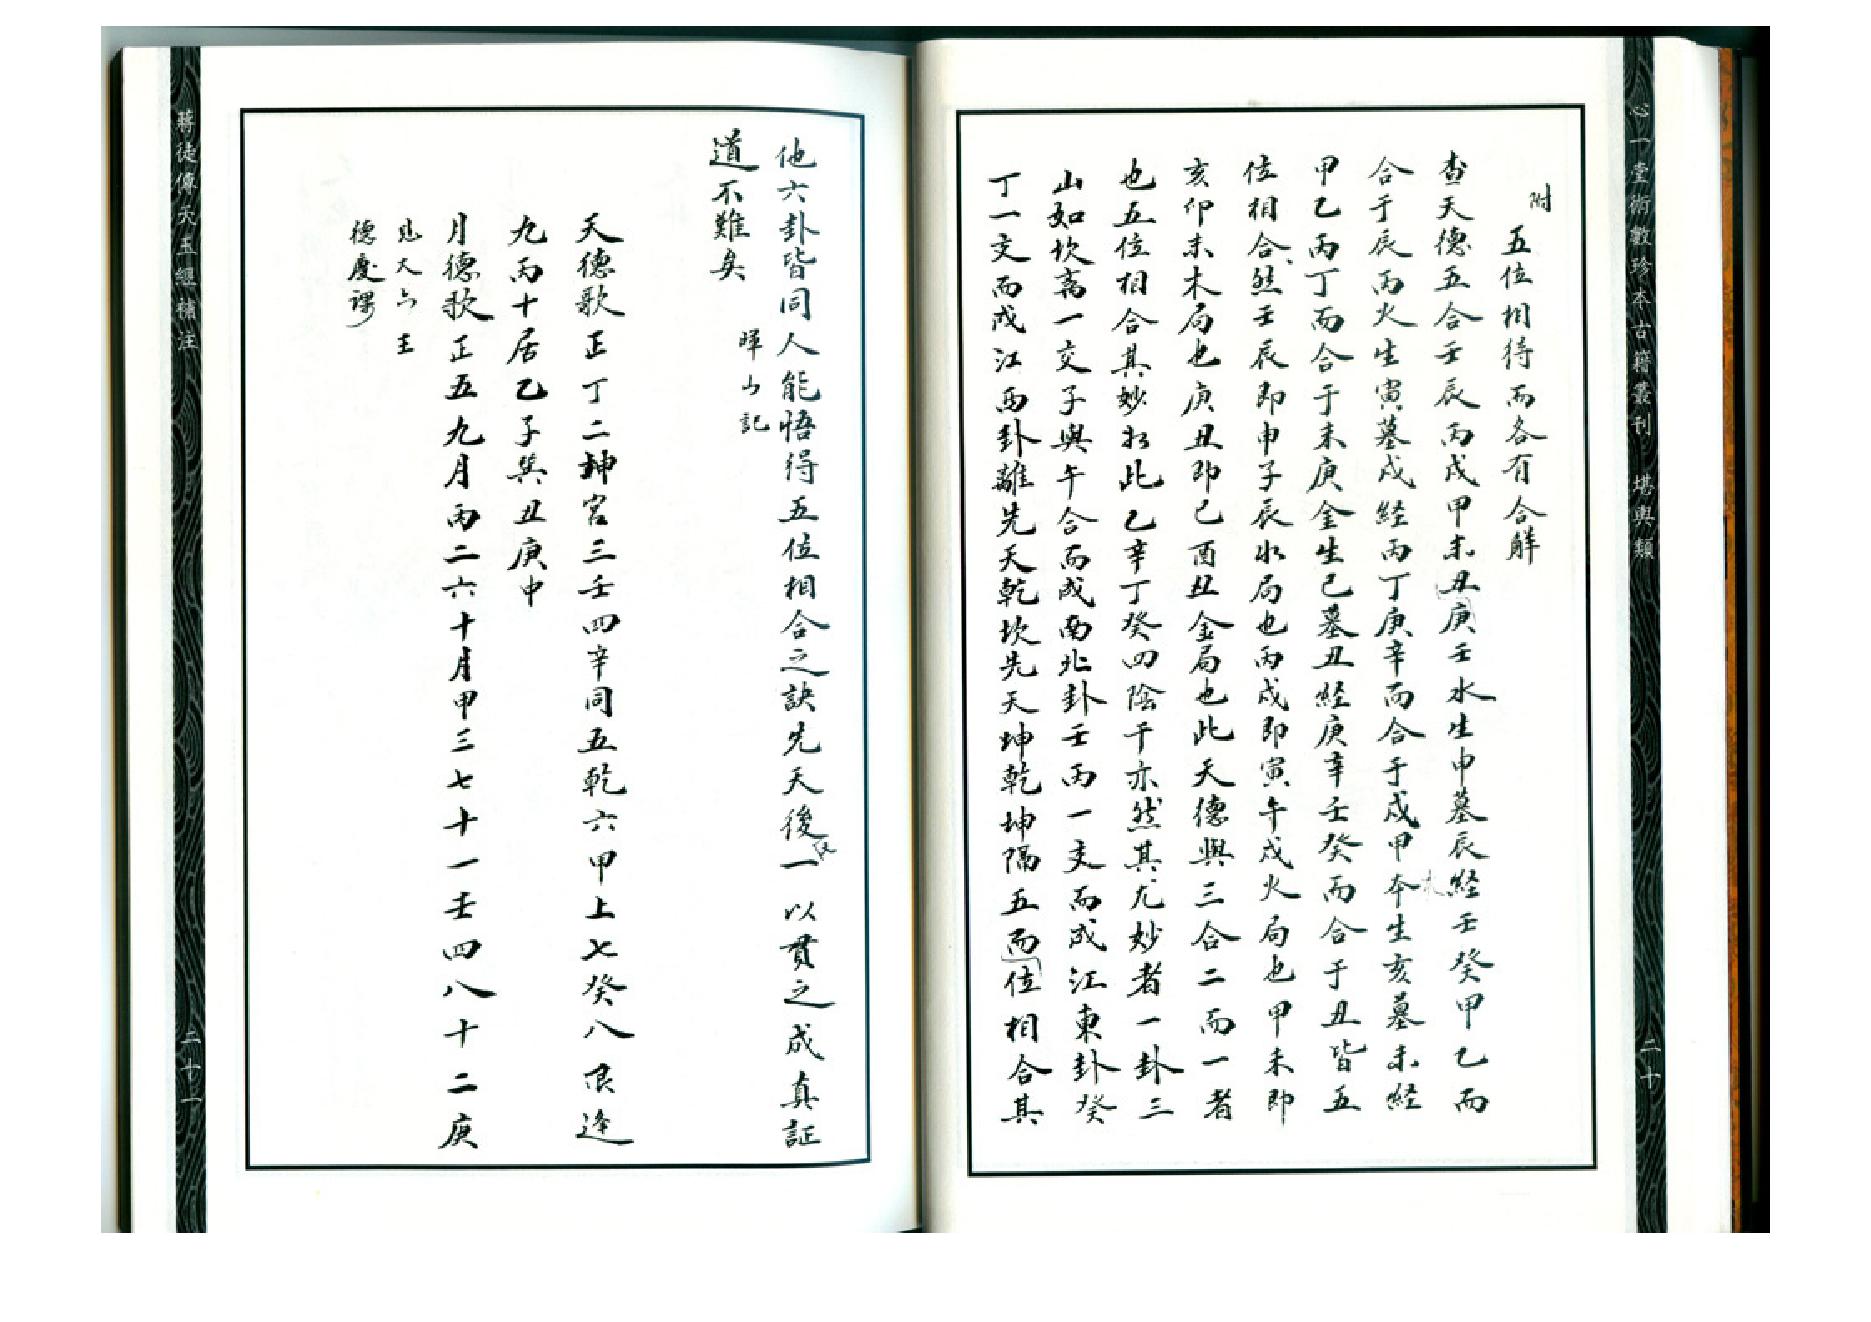 心一堂術數珍本古籍叢刊 堪輿類
二十
附
五位相得而各有合解
查天德五合壬辰丙戌甲未丑庚壬水生申墓辰経壬癸甲乙而
合于辰丙火生寅墓戌経丙丁庚辛而合于戌甲夲生亥墓未経
木
甲乙丙丁而合于未庚金生巳墓丑経庚辛壬癸而合于丑皆五
位相合然壬辰即申子辰水局也丙戌即寅午戌火局也甲未即
亥卯未木局也庚丑即巳酉丑金局也此天德與三合二而一者
也五位相合其妙如此乙辛丁癸四陰干亦然其尤妙者一卦三
山如坎离一交子與午合而成南北卦壬丙一交而成江東卦癸
丁一交而成江西卦離先天乾坎先天坤乾坤隔五而位相合其
他六卦皆同人能悟得五位相合之訣先天後一以貫之成真証
道不難矣
暉山記
天德歌正丁二坤宮三壬四辛同五乾六甲上七癸八艮逢
九丙十居乙子巽丑庚中
月德歌正五九月丙二六十月甲三七十一壬四八十二庚
德慶謬
蔣徒傳天玉經補注
二十一